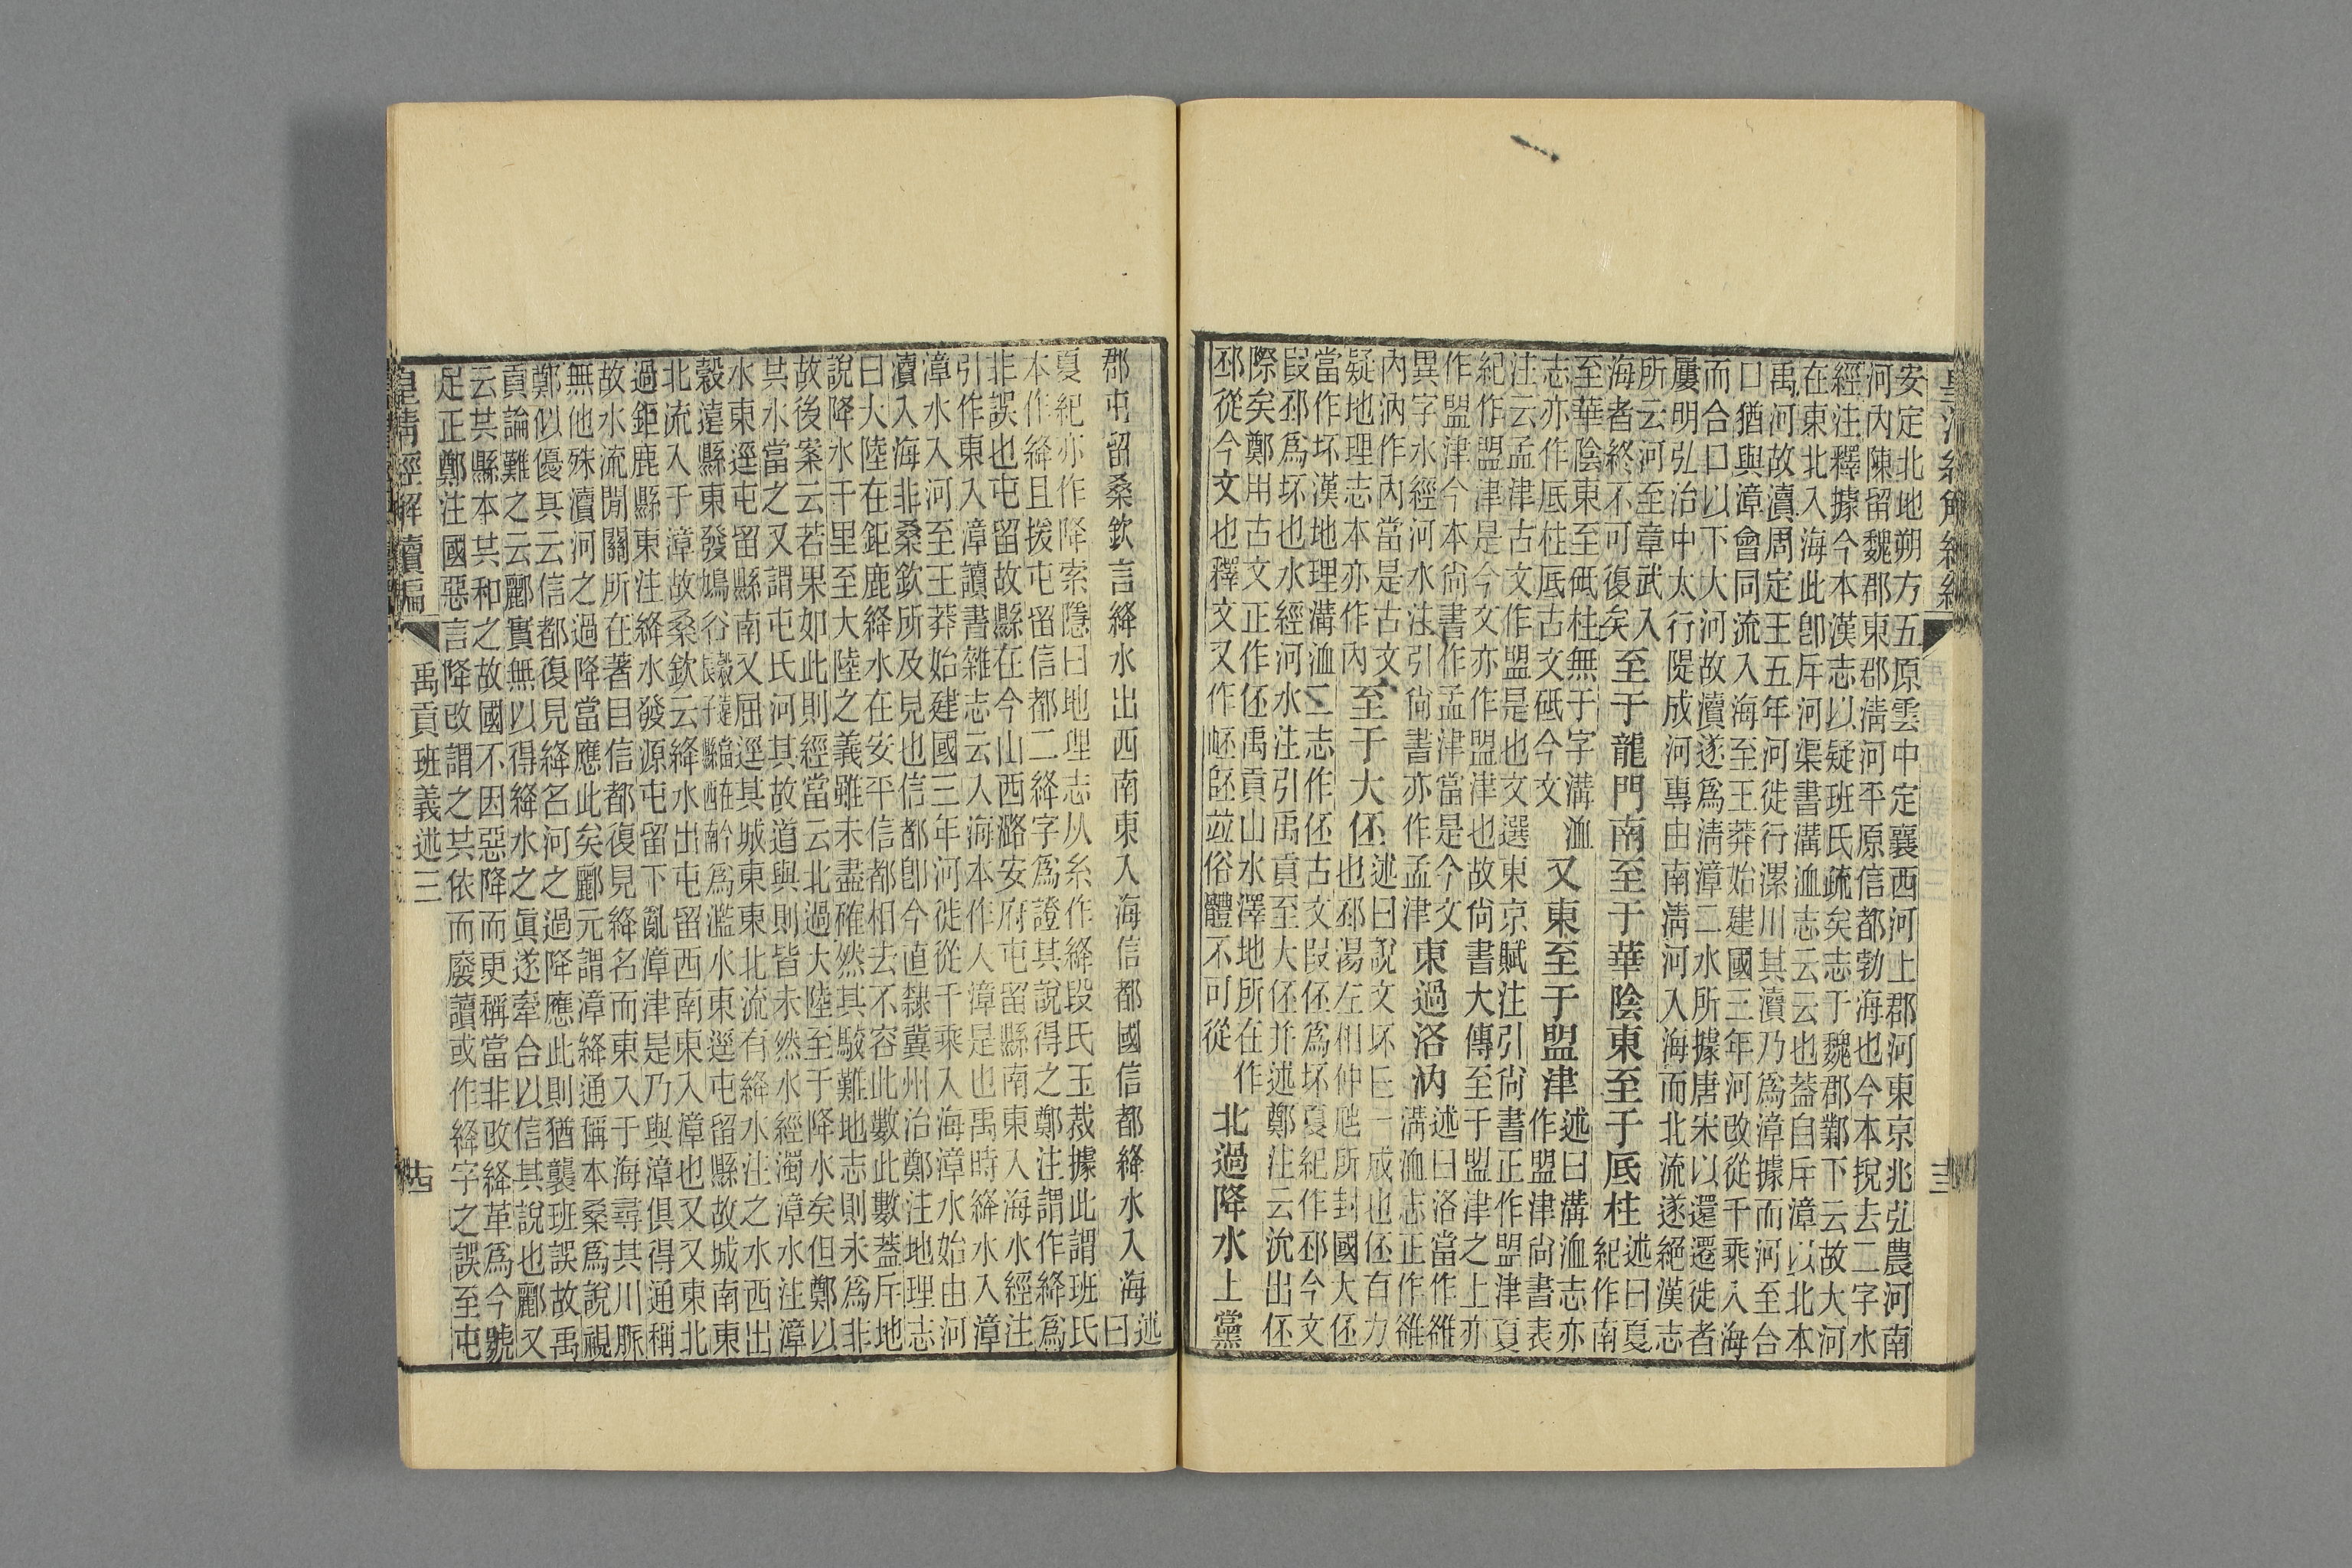 皇淸經解續編
十三
安定北地朔方五原雲中定襄西河上郡河東京兆弘農河南
河內陳留魏郡東郡清河平原信都勃海也今本挩去二字水
經注釋據今本漢志以疑班氏疏矣志于魏郡鄴下云故大河
在東北入海此卽斥河渠書溝洫志云云也葢自斥漳以北本
禹河故瀆周定王五年河徙行漯川其瀆乃爲漳據而河至合
口猶與漳會同流入海至王莽始建國三年河改從千乘入海
而合口以下大河故瀆遂爲清漳二水所據唐宋以還遷徙者
屢明弘治中太行隄成河專由南淸河入海而北流遂絕漢志
所云河至章武入
海者終不可復矣
至于龍門南至于華陰東至于厎柱
述曰夏
紀作南
至華陰東至砥柱無于字溝洫
志亦作厎柱厎古文砥今文
又東至于盟津
述曰溝洫志亦
作盟津尙書表
注云孟津古文作盟是也文選東京賦注引尙書正作盟津夏
紀作盟津是今文亦作盟津也故尙書大傳至于盟津之上亦
作盟津今本尙書作孟津當是今文
異字水經河水注引尙書亦作孟津
東過洛汭
述曰洛當作雒
溝洫志正作雒
內汭作內當是古文
疑地理志本亦作內
至于大伾
述曰說文坏丘一成也伾有力
也邳湯左相仲虺所封國大伾
當作坏漢地理溝洫二志作伾古文叚伾爲坏夏紀作邳今文
叚邳爲坏也水經河水注引禹貢至大伾并述鄭注云沇出伾
際矣鄭用古文正作伾禹貢山水澤地所在作
邳從今文也釋文又作岯並俗體不可從
北過降水
上黨
郡屯留桑欽言絳水出西南東入海信都國信都絳水入海
述
曰
夏紀亦作降索隱曰地理志从糸作絳段氏玉裁據此謂班氏
本作絳且拨屯留信都二絳字爲證其說得之鄭注謂作絳爲
非誤也屯留故縣在今山西潞安府屯留縣南東入海水經注
引作東入漳讀書雜志云入海本作入漳是也禹時絳水入漳
漳水入河至王莽始建國三年河徙從千乘入海漳水始由河
瀆入海非桑欽所及見也信都卽今直隸冀州治鄭注地理志
曰大陸在鉅鹿絳水在安平信都相去不容此數此數葢斥地
說降水千里至大陸之義雖未盡確然其駁難地志則未爲非
故後案云若果如此則經當云北過大陸至于降水矣但鄭以
其水當之又謂屯氏河其故道與則皆未然水經濁漳水注漳
水東逕屯留縣南又屈逕其城東東北流有絳水注之水西出
穀遠縣東發鳩谷
穀遠當在
長子縣西南今
爲濫水東逕屯留縣故城南東
北流入于漳故桑欽云絳水出屯留西南東入漳也又又東北
過鉅鹿縣東注絳水發源屯留下亂漳津是乃與漳俱得通稱
故水流閒關所在著目信都復見絳名而東入于海尋其川脈
無他殊瀆河之過降當應此矣酈元謂漳絳通稱本桑爲說視
鄭似優其云信都復見絳名河之過降應此則猶襲班誤故禹
貢論難之云酈實無以得絳水之眞遂牽合以信其說也酈又
云其縣本共和之故國不因惡降而更稱當非改絳革爲今號
足正鄭注國惡言降改謂之其依而廢讀或作絳字之誤至屯
皇清經解續編
禹貢班義述三
十四